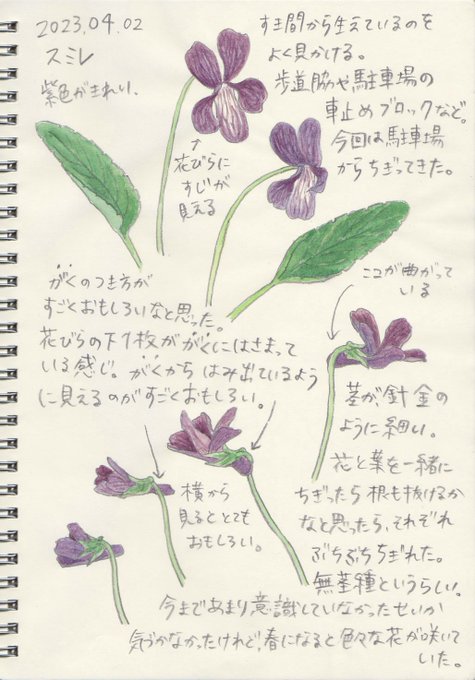 2023.04.02
スミレ
紫色がきれい、
すき間から生えているのを
よく見かける。
歩道脇や駐車場の
車止めブロックなど。
今回は駐車場
からちぎってきた。
花びらに
すじが
見える
がくのつき方が
すごくおもしろいなと思った。
花びらの下1枚ががくにはさまって
いる感じ。がくからはみ出ているよう
に見えるのがすごくおもしろい。
ココが曲がって
いる
茎が針金の
ように細い。
横から
見るととても
おもしろい。
花と葉を一緒に
ちぎったら根も抜けるか
なと思ったら、それぞれ
ぶちぶちちぎれた。
無茎種というらしい。
今まであまり意識していなかったせいか
気づかなかったけれど、春になると色々な花が咲いて
いた。